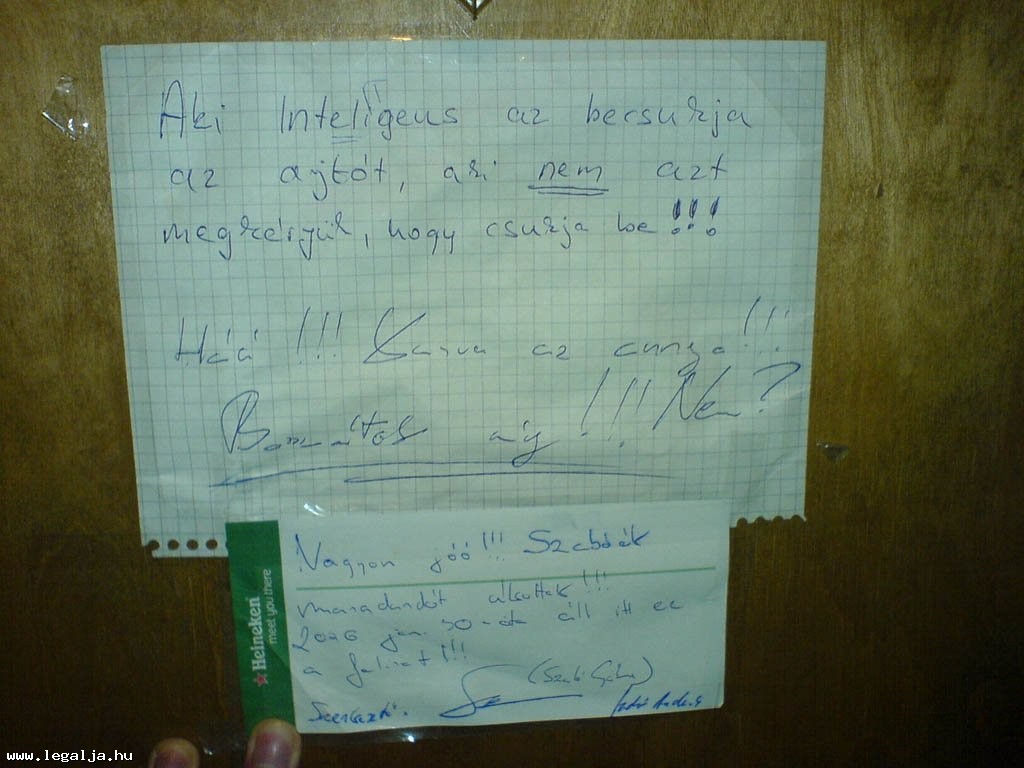 Aki Inteligens az becsukja
az ajtót, aki nem azt
megkérjük, hogy csukja be!!!
Háá!!! Kurva az annya!!!
úgy!!! Nem?
Nagyon jóó!!! Szabóék
maradandót alkottak!!!
2006 jan. 30-óta áll itt ez
a felirat!!!
(Szabó)
Szerkeztő.
Heineken
meet you there
www.legalja.hu